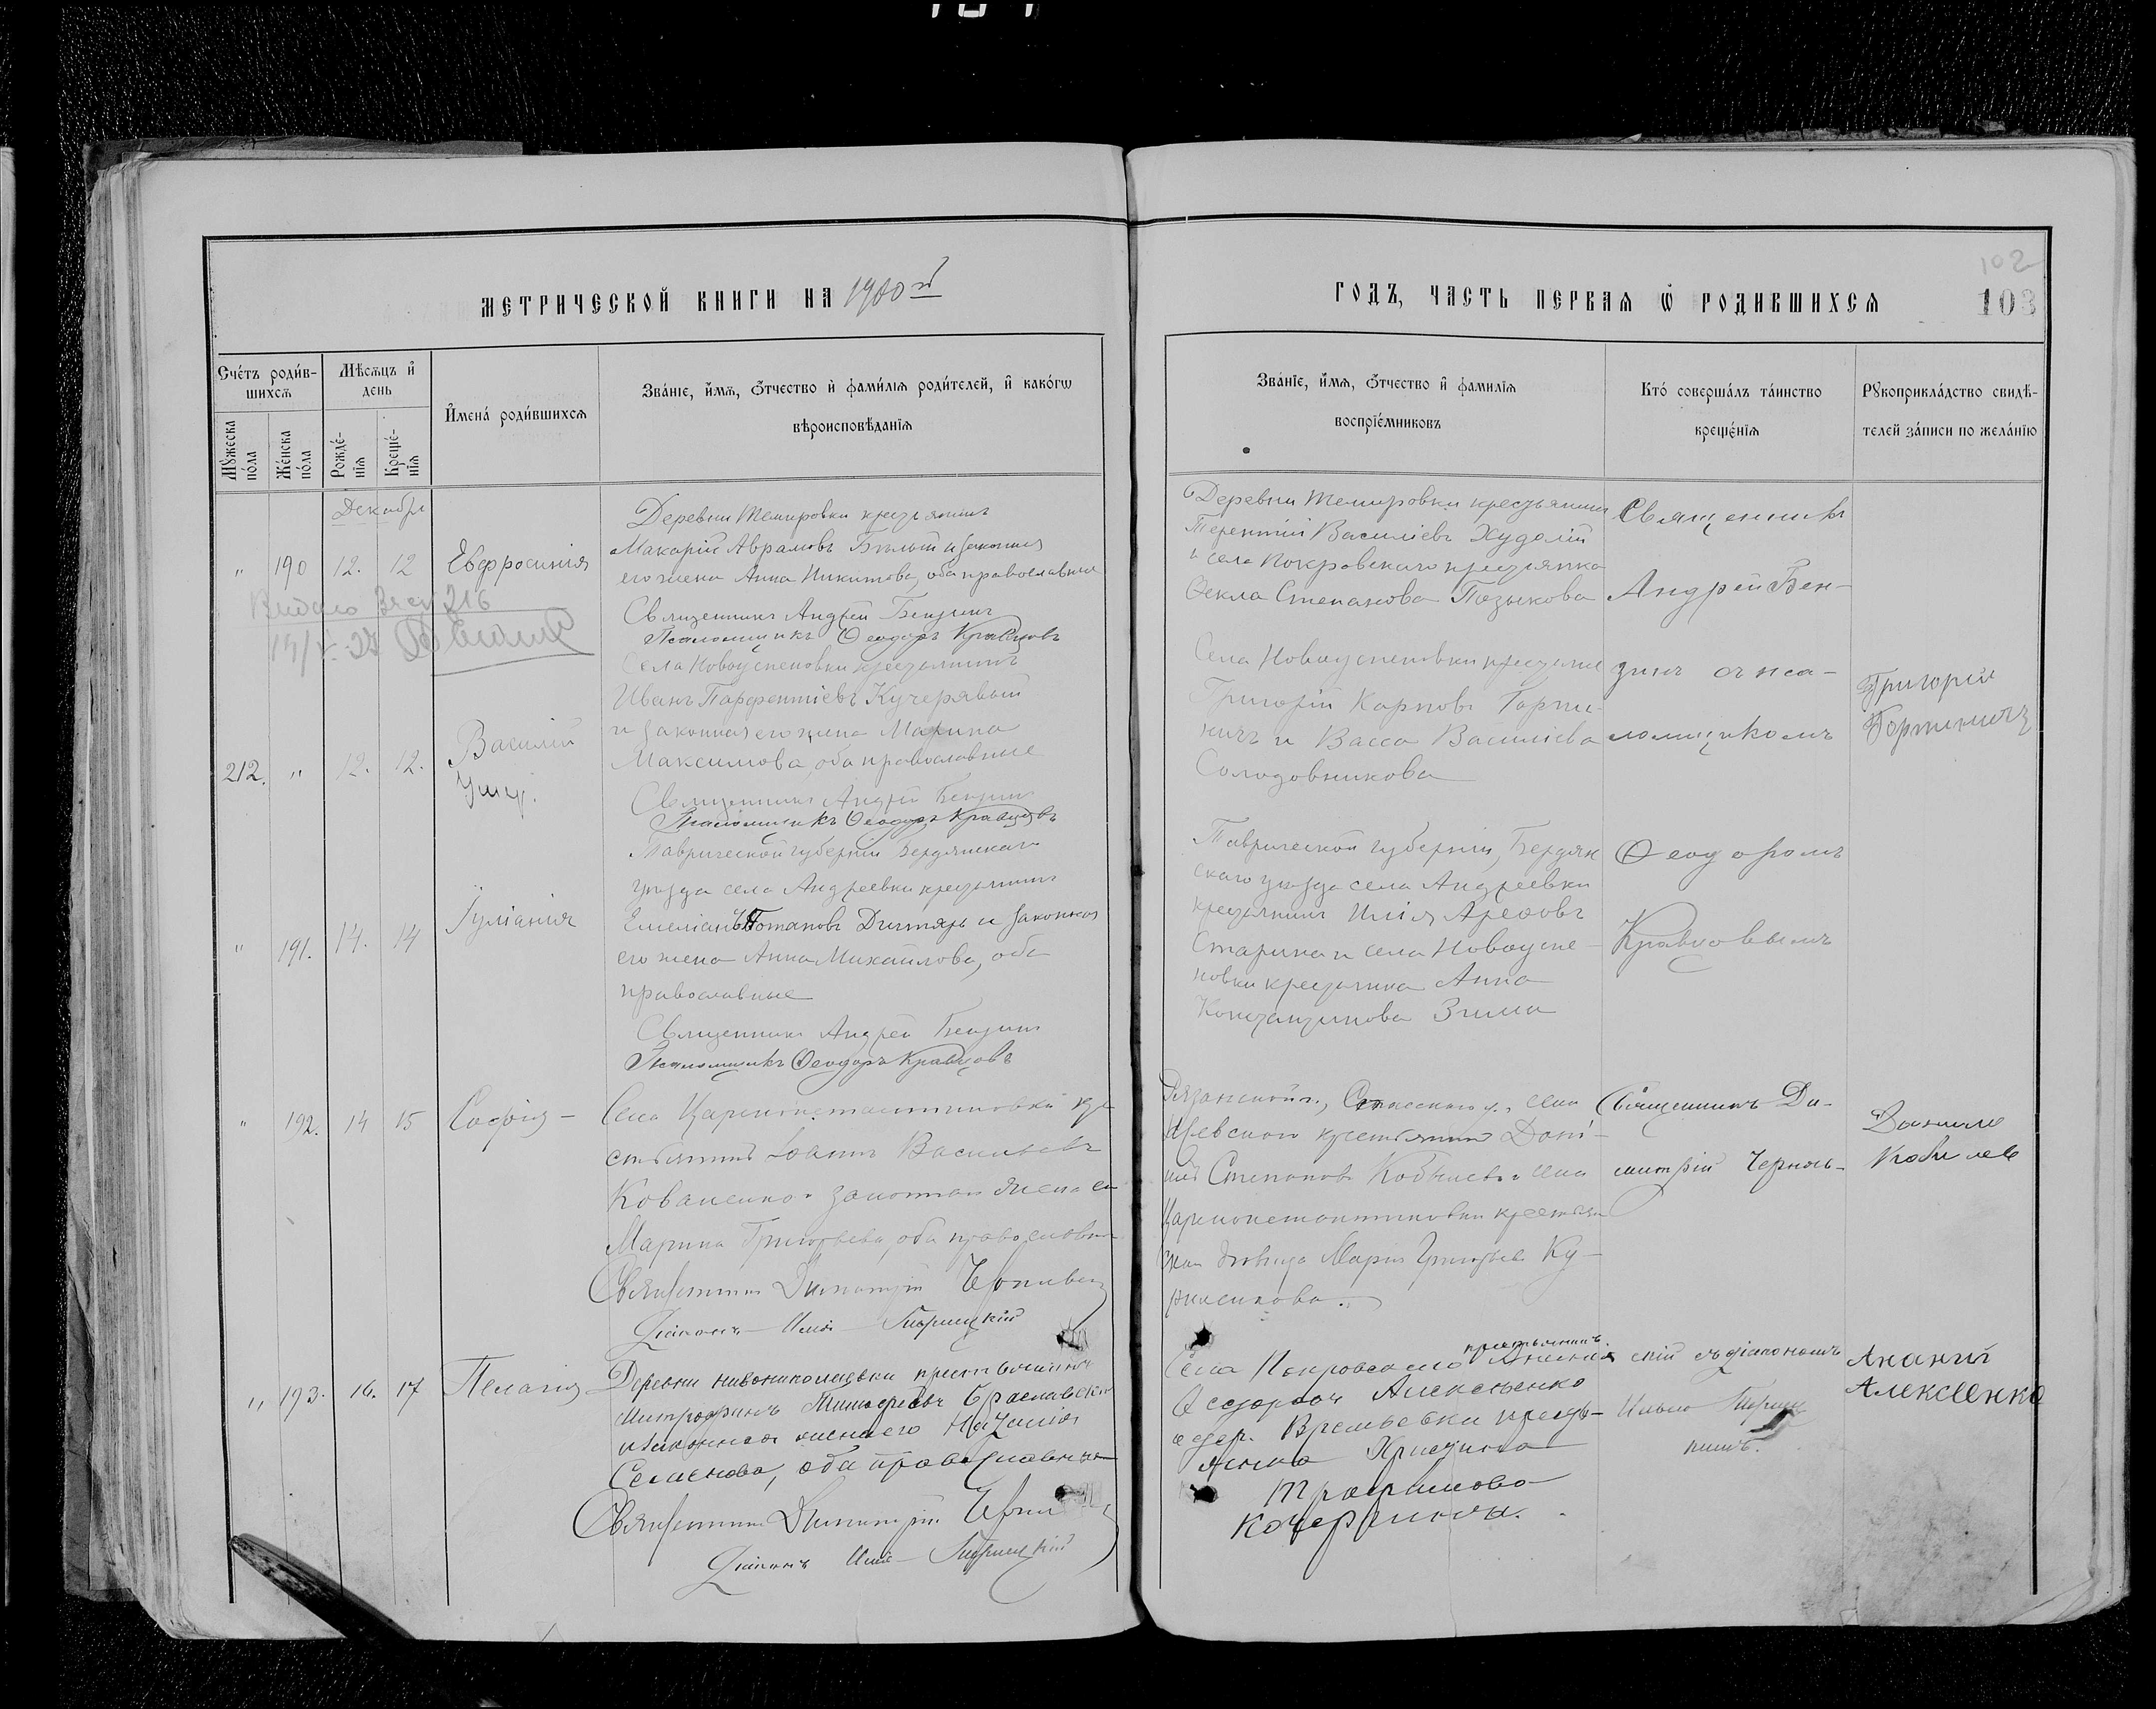 МЕТРИЧЕСКОЙ КНИГИ НА 1900й
ГОДЪ, ЧАСТЬ ПЕРВАѦ Ѡ РОДИВШИХСѦ
102
103
Счéтъ роди́в-
шихсѧ
Мѣ́сѧцъ и҆
день
И҆мена́ роди́вшихсѧ
Зва́нїе, и҆́мѧ, ѻ҆́тчество и҆ фами́лїѧ роди́телей, и҆ како́гѡ
вѣроисповѣ́данїѧ
Мꙋ́жеска
по́ла
Же́нска
по́ла
Рожде́-
нїѧ
Креще́-
нїѧ
Зва́нїе, и҆́мѧ, ѻ҆́тчество и҆ фамилїѧ
воспрїе́мниковъ
Кто́ соверша́лъ та́инство
креще́нїѧ
Рꙋкоприкла́дство свидѣ́-
телей за́писи по жела́нїю
Декабрь
" 190 12. 12 Евфросинія
Деревни Темировки крестьянинъ
Макарій Аврамовъ Бѣлый и законная
его жена Анна Никитова, оба православные
Священникъ Андрей Бензинъ
Псаломщикъ Ѳеодоръ Кравцовъ
Деревни Темировки крестьянинъ
Терентій Василіевъ Худолій
и села Покровскаго крестьянка
Ѳекла Степанова Позыкова
Священникъ
Андрей Бен-
216
14/V-
212. " 12. 12. Василій
Умер.
Села Новоуспеновки крестьянинъ
Иванъ Парфентіевъ Кучерявый
и законная его жена Марина
Максимова, оба православные
Священникъ Андрей Бензинъ
Псаломщикъ Ѳеодоръ Кравцовъ
Села Новоуспеновки
Григорій Карповъ Горпи-
ничъ и Васса Василіева
Солодовникова
зинъ съ пса-
ломщикомъ
Григорій
Горпиничъ
" 191. 14. 14 Іуліанія
Таврической губерніи Бердянскаго
уѣзда села Андреевки крестьянинъ
Емеліанъ Потаповъ Дихтярь и законная
его жена Анна Михайлова, оба
православные
Священникъ Андрей Бензинъ
Псаломщикъ Ѳеодоръ Кравцовъ
Таврической губерніи, Бердян
скаго уѣзда села Андреевки
крестьянинъ Илія Ареѳовъ
Старина и села Новоуспе-
новки крестьянка Анна
Константинова Зима
Ѳеодоромъ
Кравцовымъ
" 192. 14 15 Софія -
Села Цареконстантиновки кре
стьянинъ Іоаннъ Васильевъ
Коваленко и законная жена его
Марина Григорьева, оба православн
Священникъ Димитрій
Діаконъ Илія
Рязанской г., Спасскаго у. села
крестьянинъ Дані-
илъ Степановъ Кобылевъ и села
Цареконстантиновки крестьян
ская дѣвица Марія Григорьева Ку-
Священникъ Ди-
митрій
Данило
Кобилев
" 193. 16. 17 Пелагія
Деревни Новониколаевки крестьянинъ
Митрофанъ Браславскій
и законная жена его Наталія
Семенова, оба православные
Священникъ Димитрій
Діаконъ Илія
крестьянинъ
Села Покровскаго Ананія
Ѳедоровъ Алексѣенко
и дер. Времьевки кресть-
янка Христина
Трофимова
скій съ діакономъ
Ильею
кимъ.
Ананій
Алексеенко